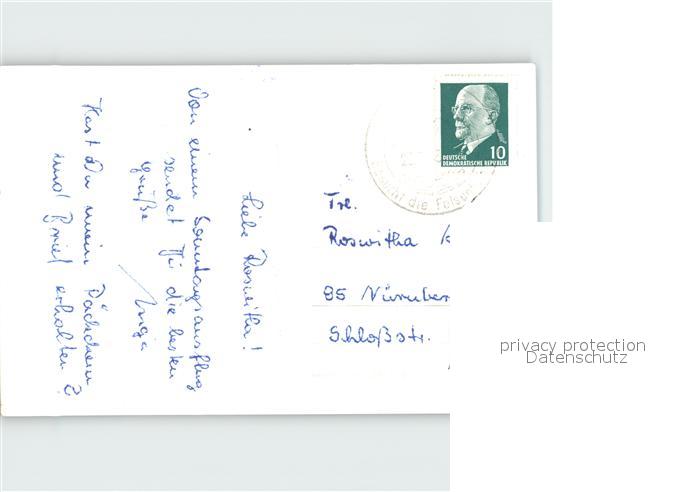 Liebe Roswitha!
Von einem Sonntagsausflug
sendet Dir die besten
Grüße
Inga
Hast Du mein Päckchen
und Brief erhalten?
10
DEUTSCHE
DEMOKRATISCHE REPUBLIK
die Felsen
Frl.
Roswitha
85 Nürnber
Schloßstr.
privacy protection
Datenschutz